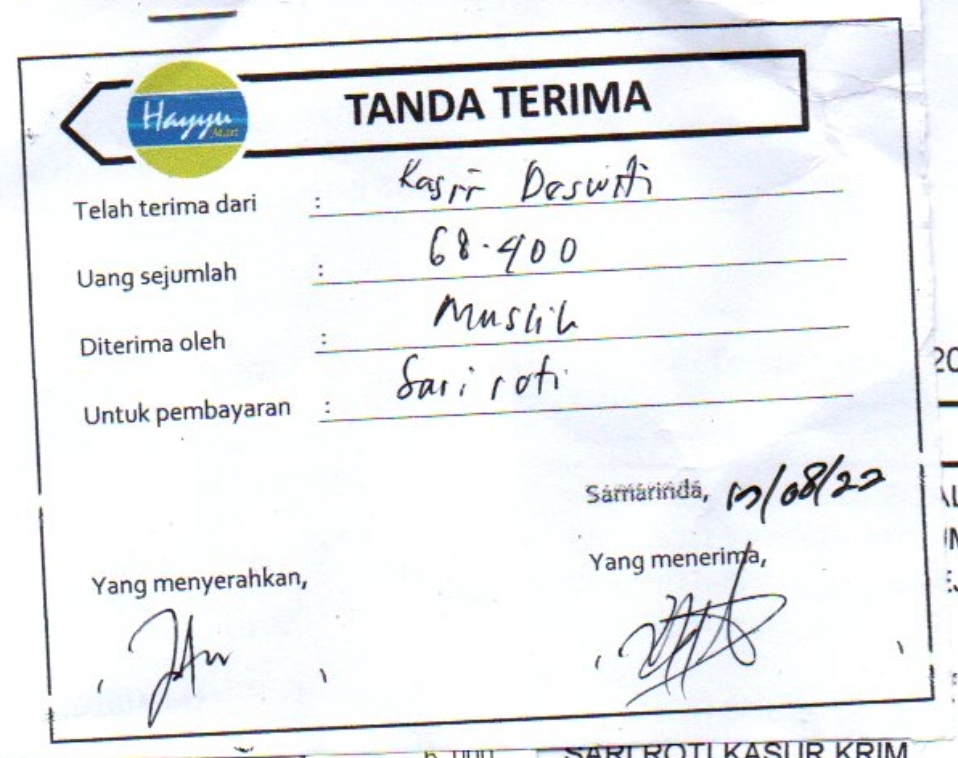 Hayyu
Mart
TANDA TERIMA
Telah terima dari : Kasir Deswita
Uang sejumlah : 68.400
Diterima oleh : Muslih
Untuk pembayaran : Sari roti
Samarinda, /08/22
Yang menyerahkan,
Yang menerima,
20
SARI ROTI KASUR KRIM